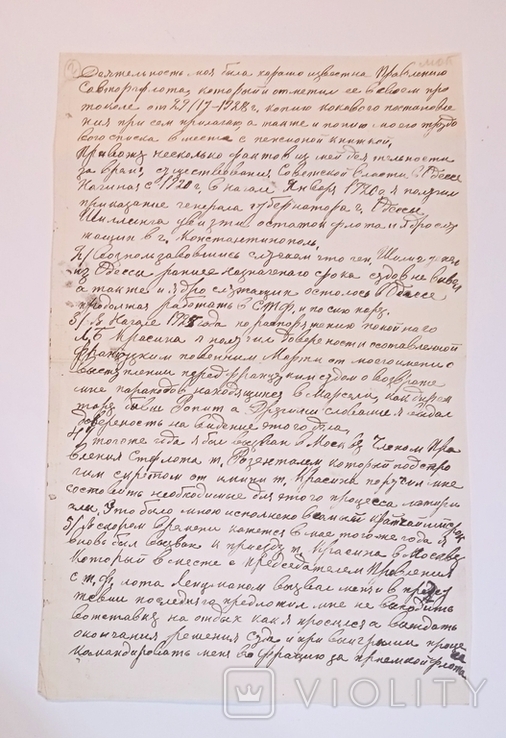 Деятельность моя была хорошо известна Правлению
Совторгфлота, который отметил ее в своем про
токоле от 29/IV-1928 г. копию какового постановле
ния при сем прилагаю а также и копию моего трудо
вого списка вместе с пенсионой книжкой.
Привожу несколько фактов из моей деятельности
за время существования Советской власти в Одессе
Начиная с 1920 г. в начале Января 1920 я получил
приказание генерала губернатора г. Одессы
Шиллинга увезти остатки флота и
в г. Константинополь.
Воспользовавшись случаем что ген. Шиллинг
из Одессы раннее назначеного срока судов не вывел
а также и ядро служащих осталось в Одессе
продолжая работать в СТФ. и по сию пору.
3/ В Начале года по распоряжению покойного
Л,Б Красина я получил доверенность составленной
Французким от моего имени о
выступлении перед Французким судом о возврате
мне пароходов находящихся в Марсели, как
были Ропит а Другими словами я выдал
доверенность на видение этого дела.
4/ того же года я был вызван в Москву Членом Пра
вления т. Розенталем который под стро
гим секретом от имени т. Красина поручил мне
составить необходимые для этого процесса матери
алы. Это было мною исполнено в самый краткий срок
5/ В скором времени кажется в мае того же года я
вновь был вызван к приезду т. Красина в Москву
Который вместе с Председателем Правления
С.т. флота вызвал меня и в прису
тствии последняго предложил мне не выходить
в отставку на отдых как я просился а выждать
окончания решения Суда и при выигрыше проце
командировать меня во Францию за приемкой флота
VIOLITY